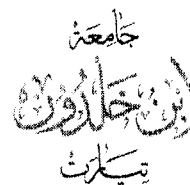 جَامِعَة
ابن خَلدُون
تيَارت